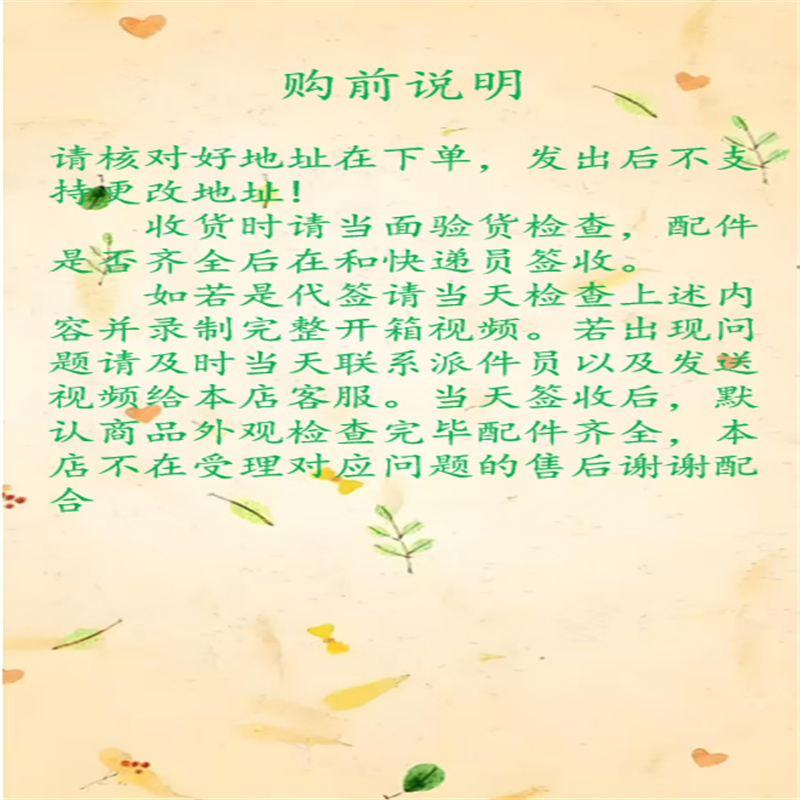 购前说明
请核对好地址在下单，发出后不支
持更改地址！
收货时请当面验货检查，配件
是否齐全后在和快递员签收。
如若是代签请当天检查上述内
容并录制完整开箱视频。若出现问
题请及时当天联系派件员以及发送
视频给本店客服。当天签收后，默
认商品外观检查完毕配件齐全，本
店不在受理对应问题的售后谢谢配
合